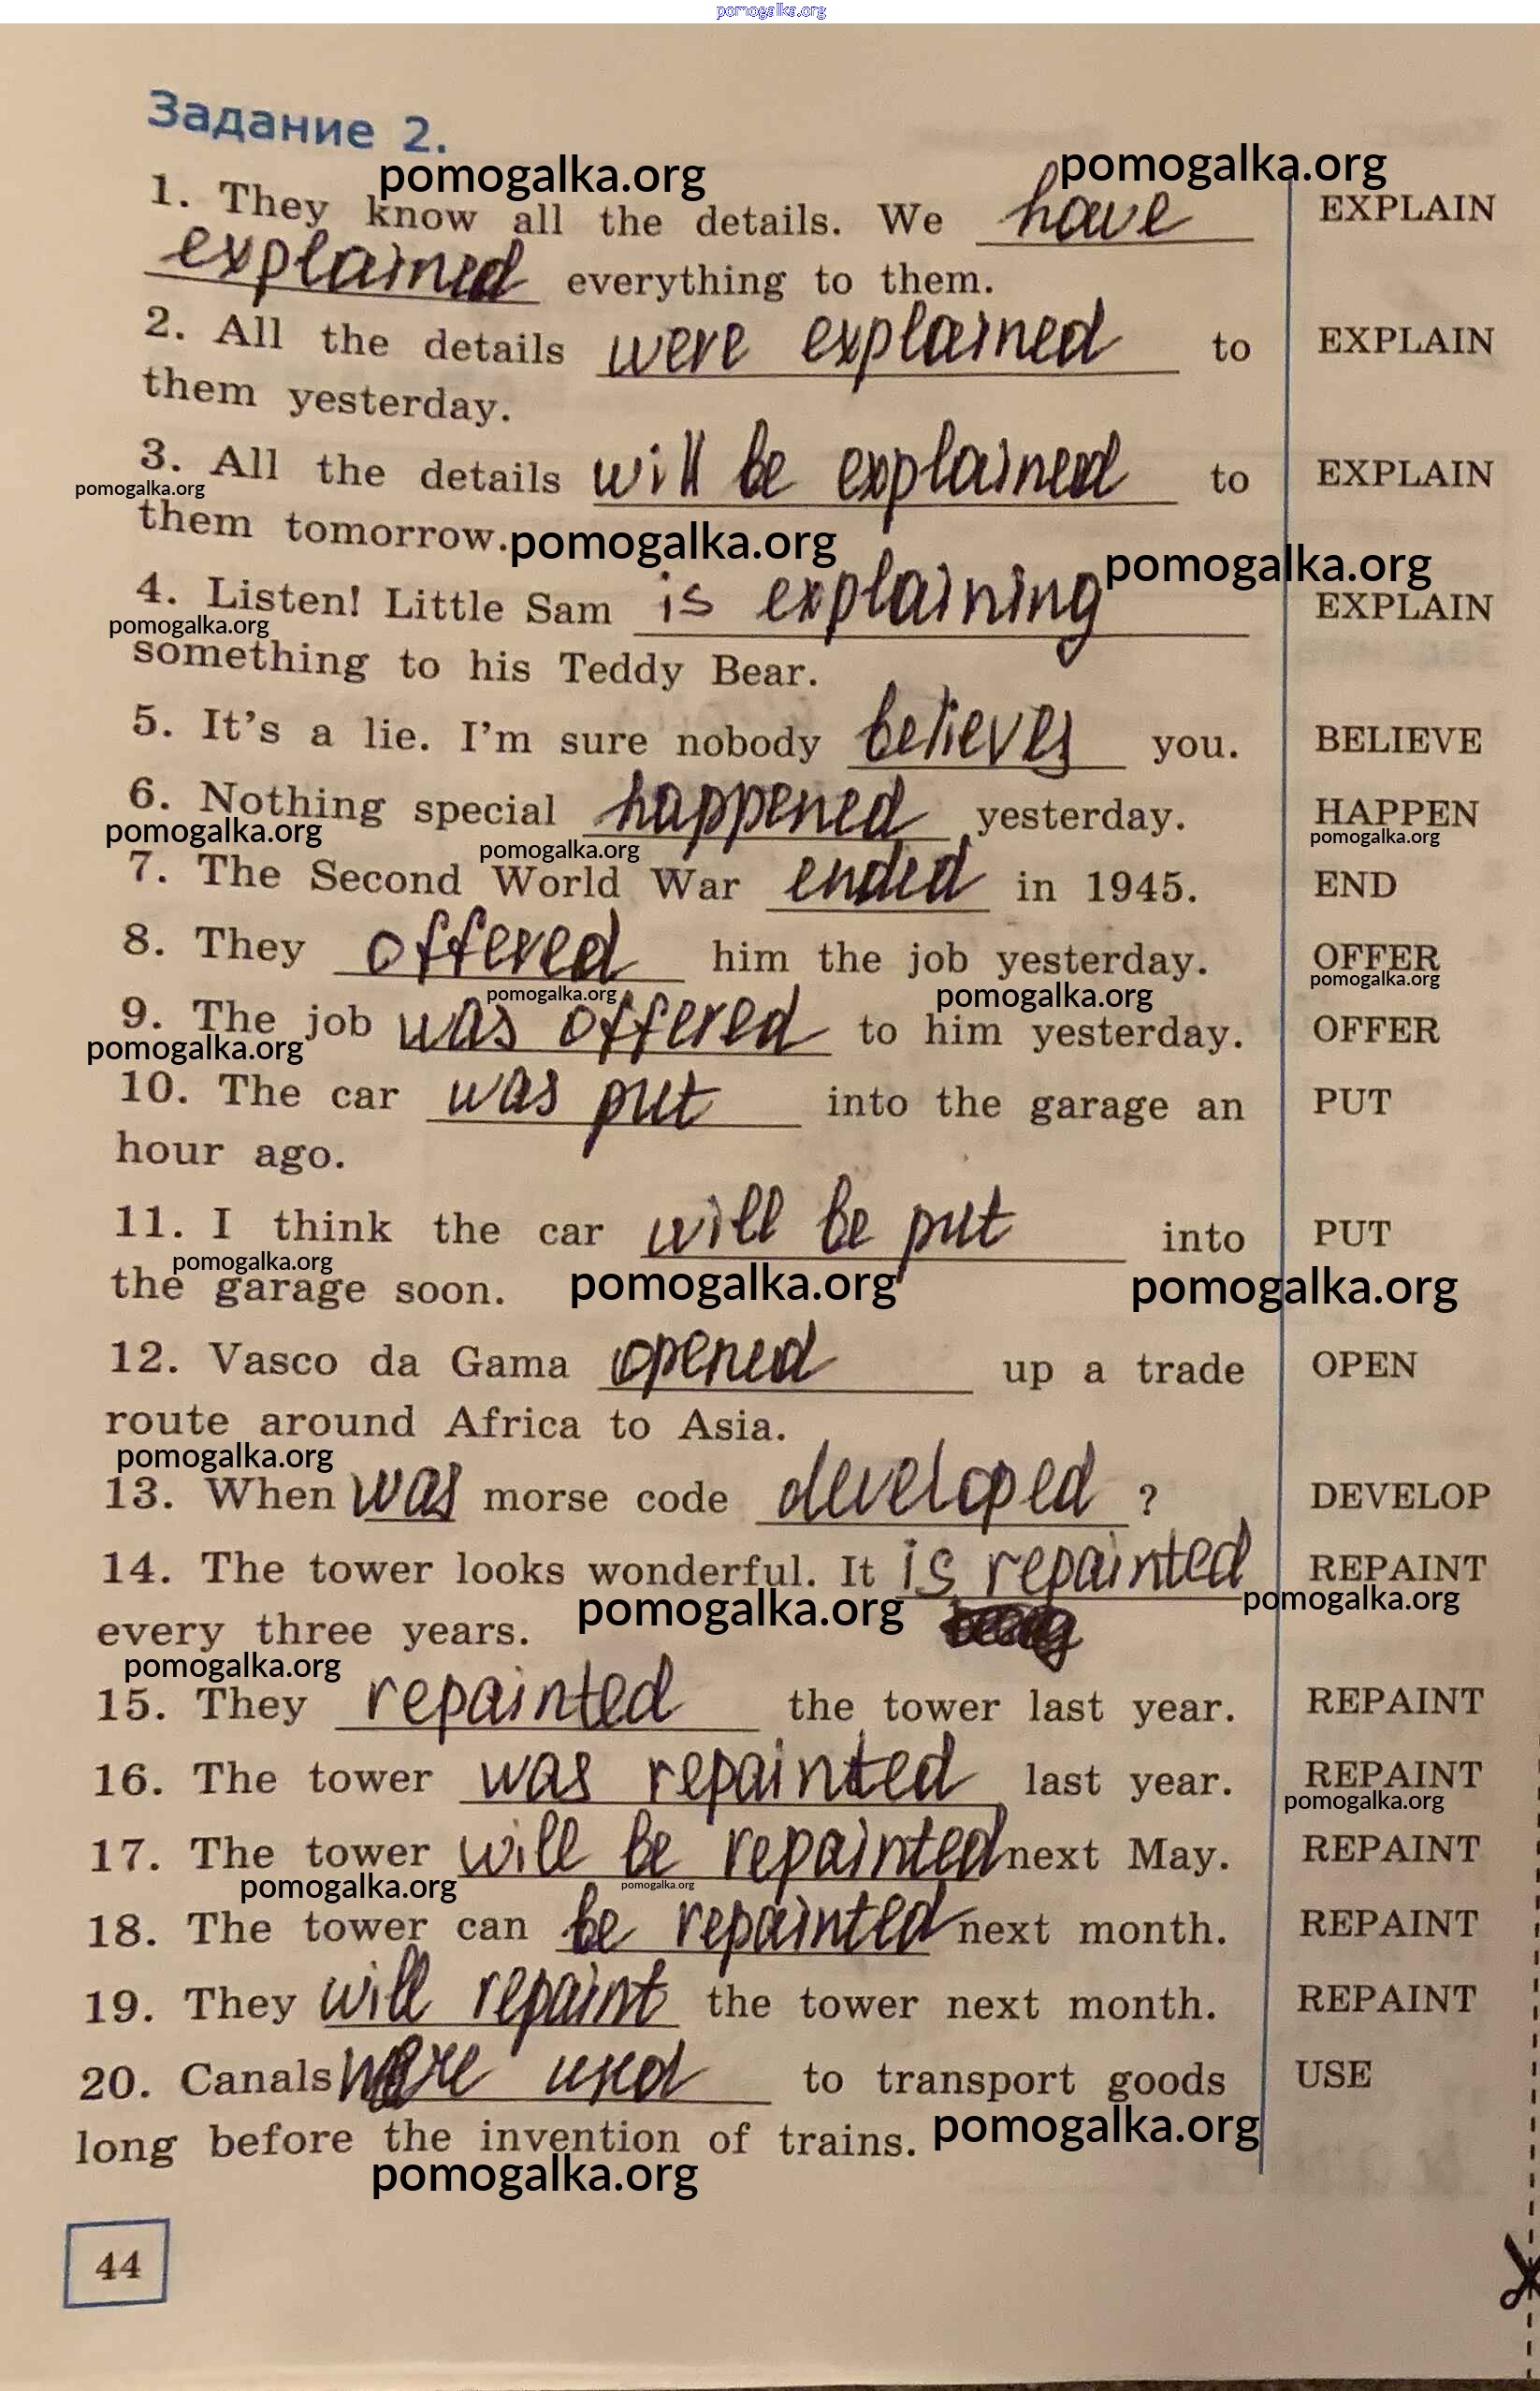 pomogalka.org
Задание 2.
pomogalka.org pomogalka.org
1. They know all the details. We have EXPLAIN
explained everything to them.
2. All the details were explained to EXPLAIN
them yesterday.
3. All the details will be explained to EXPLAIN
pomogalka.org
them tomorrow. pomogalka.org
pomogalka.org
4. Listen! Little Sam is explaining EXPLAIN
pomogalka.org
something to his Teddy Bear.
5. It's a lie. I'm sure nobody believes you. BELIEVE
6. Nothing special happened yesterday. HAPPEN
pomogalka.org pomogalka.org pomogalka.org
7. The Second World War ended in 1945. END
8. They offered him the job yesterday. OFFER
pomogalka.org pomogalka.org pomogalka.org
9. The job was offered to him yesterday. OFFER
pomogalka.org
10. The car was put into the garage an PUT
hour ago.
11. I think the car will be put into PUT
pomogalka.org
the garage soon. pomogalka.org pomogalka.org
12. Vasco da Gama opened up a trade OPEN
route around Africa to Asia.
pomogalka.org
13. When was morse code developed ? DEVELOP
14. The tower looks wonderful. It is repainted REPAINT
pomogalka.org pomogalka.org
every three years.
pomogalka.org
15. They repainted the tower last year. REPAINT
16. The tower was repainted last year. REPAINT
pomogalka.org
17. The tower will be repainted next May. REPAINT
pomogalka.org pomogalka.org
18. The tower can be repainted next month. REPAINT
19. They will repaint the tower next month. REPAINT
20. Canals were used to transport goods USE
long before the invention of trains. pomogalka.org
pomogalka.org
44